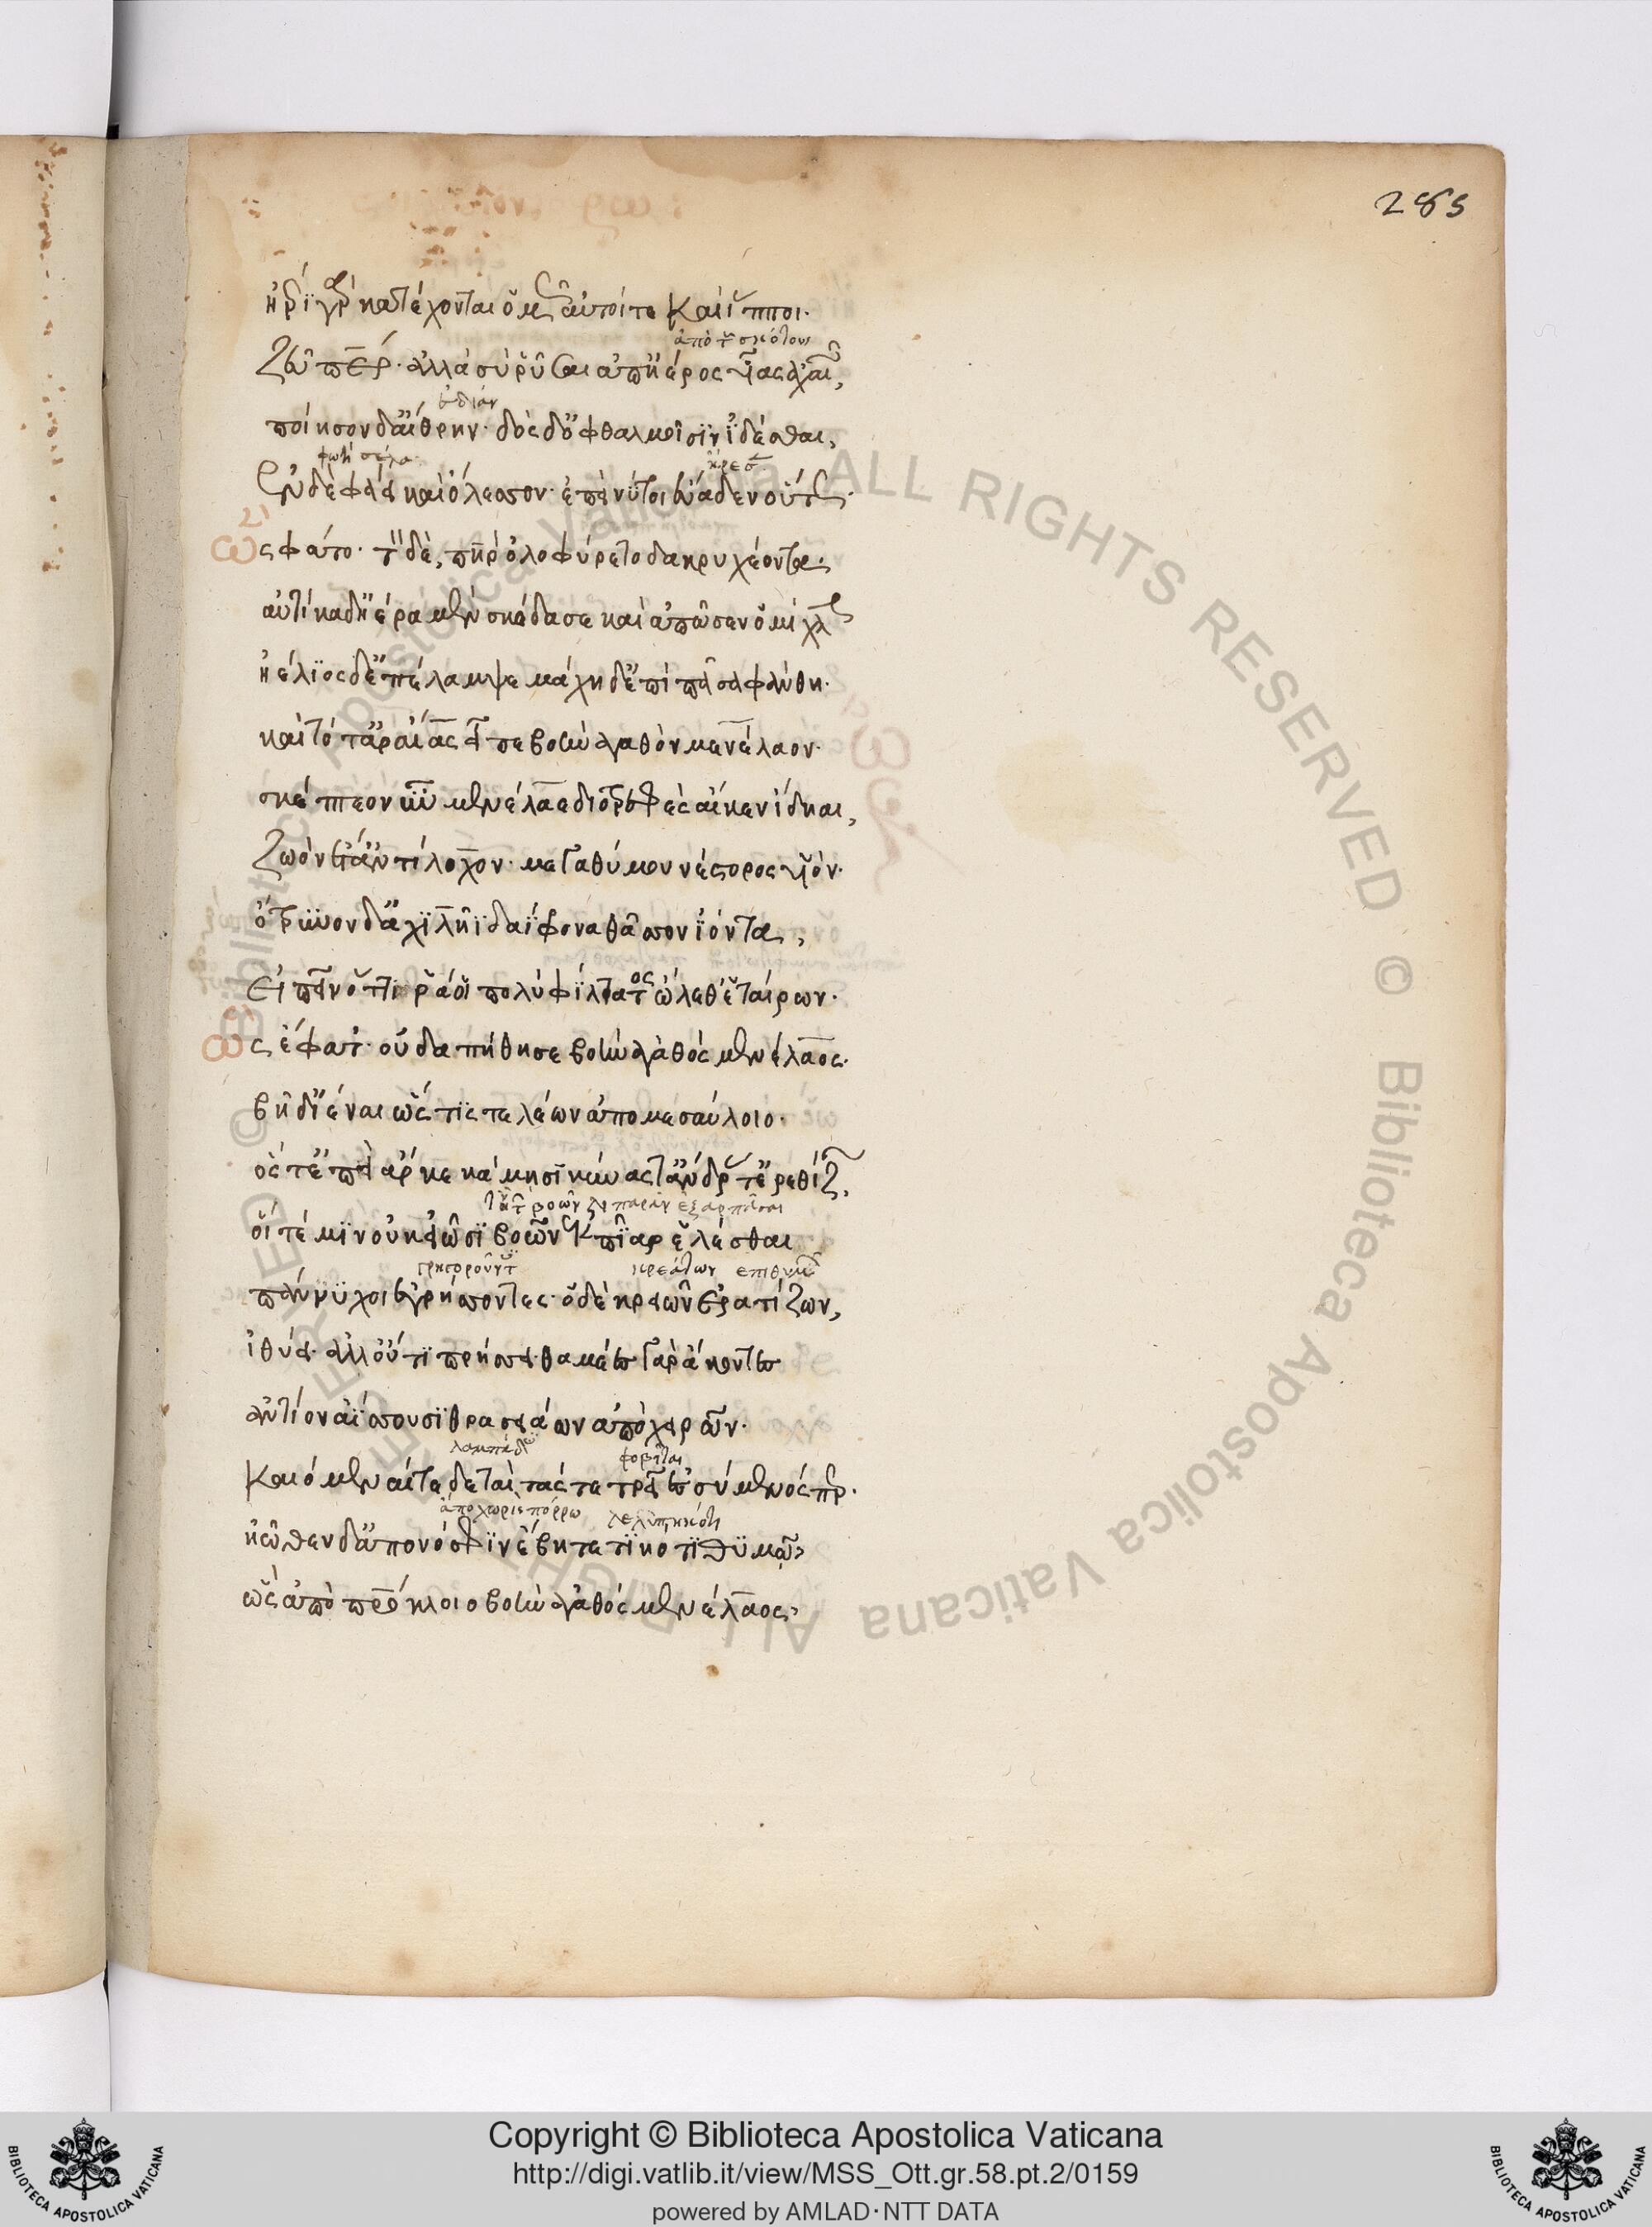 285
ἠέρι γὰρ κατέχονται ὁμῶς αὐτοί τε καὶ ἵπποι·
ἀπὸ τοῦ σκότους
Ζεῦ πάτερ· ἀλλὰ σὺ ῥῦσαι ἀπ' ἠέρος υἷας ἀχαιῶν,
εὐδίαν
ποίησον δ' αἴθρην· δὸς δ' ὀφθαλμοῖσιν ἰδέσθαι,
ἤρεσεν
ἐν δὲ φάει καὶ ὄλεσσον· ἐπεί νύ τοι εὔαδεν οὕτως·
21
ὣς φάτο· τὸν δὲ, πατὴρ ὀλοφύρετο δακρυχέοντα·
αὐτίκα δ' ἠέρα μὲν σκέδασε καὶ ἀπῶσεν ὀμίχλην
ἠέλιος δ' ἐπέλαμψε μάχη δ' ἐπὶ πᾶσα φαάνθη·
καὶ τότ' ἄρ' αἴας εἶπε βοὴν ἀγαθὸν μενέλαον·
σκέπτεο νῦν μενέλαε διοτρεφὲς αἴ κεν ἴδηαι,
Ζωὸν ἔτ' ἀντίλοχον· μεγαθύμου νέστορος υἱόν·
ὄτρυνον δ' ἀχιλῆϊ δαΐφρονι θᾶσσον ἰόντα,
εἰπεῖν ὅττι ῥά οἱ πολὺ φίλτατος ὤλεθ' ἑταίρων·
ὣς ἔφατ'· οὐδ' ἀπίθησε βοὴν ἀγαθὸς μενέλαος·
βῆ δ' ἰέναι ὥς τίς τε λέων ἀπο μεσαύλοιο·
ὅς τ' ἐπεὶ ἄρ κε κάμησι κύνας τ' ἄνδρας τ' ἐρεθίζων,
βοῶν λιπαρὰν ἐξαρπάσαι
οἵ τέ μιν οὐκ εἰῶσι βοῶν ἐκ πῖαρ ἑλέσθαι
γρηγοροῦντες κρεάτων ἐπιθυμῶν
πάννυχοι ἐγρήσσοντες· ὁ δὲ κρειῶν ἐρατίζων,
ἰθύει· ἀλλ' οὔτι πρήσσει· θαμέες γὰρ ἄκοντες
ἀντίον ἀΐσσουσι θρασειάων ἀπὸ χειρῶν·
λαμπάδες φοβεῖται
καιόμεναί τε δεταὶ τάς τε τρεῖ ἐσσύμενός περ·
ἀποχωρὶς πόρρω λελυπημένῃ
ἠῶθεν δ' ἀπονόσφιν ἔβη τετιηότι θυμῷ,
ὣς ἀπὸ πατρόκλοιο βοὴν ἀγαθὸς μενέλαος,
Copyright © Biblioteca Apostolica Vaticana
http://digi.vatlib.it/view/MSS_Ott.gr.58.pt.2/0159
powered by AMLAD·NTT DATA
BIBLIOTECA APOSTOLICA VATICANA
BIBLIOTECA APOSTOLICA VATICANA
Biblioteca Apostolica Vaticana ALL RIGHTS RESERVED ©